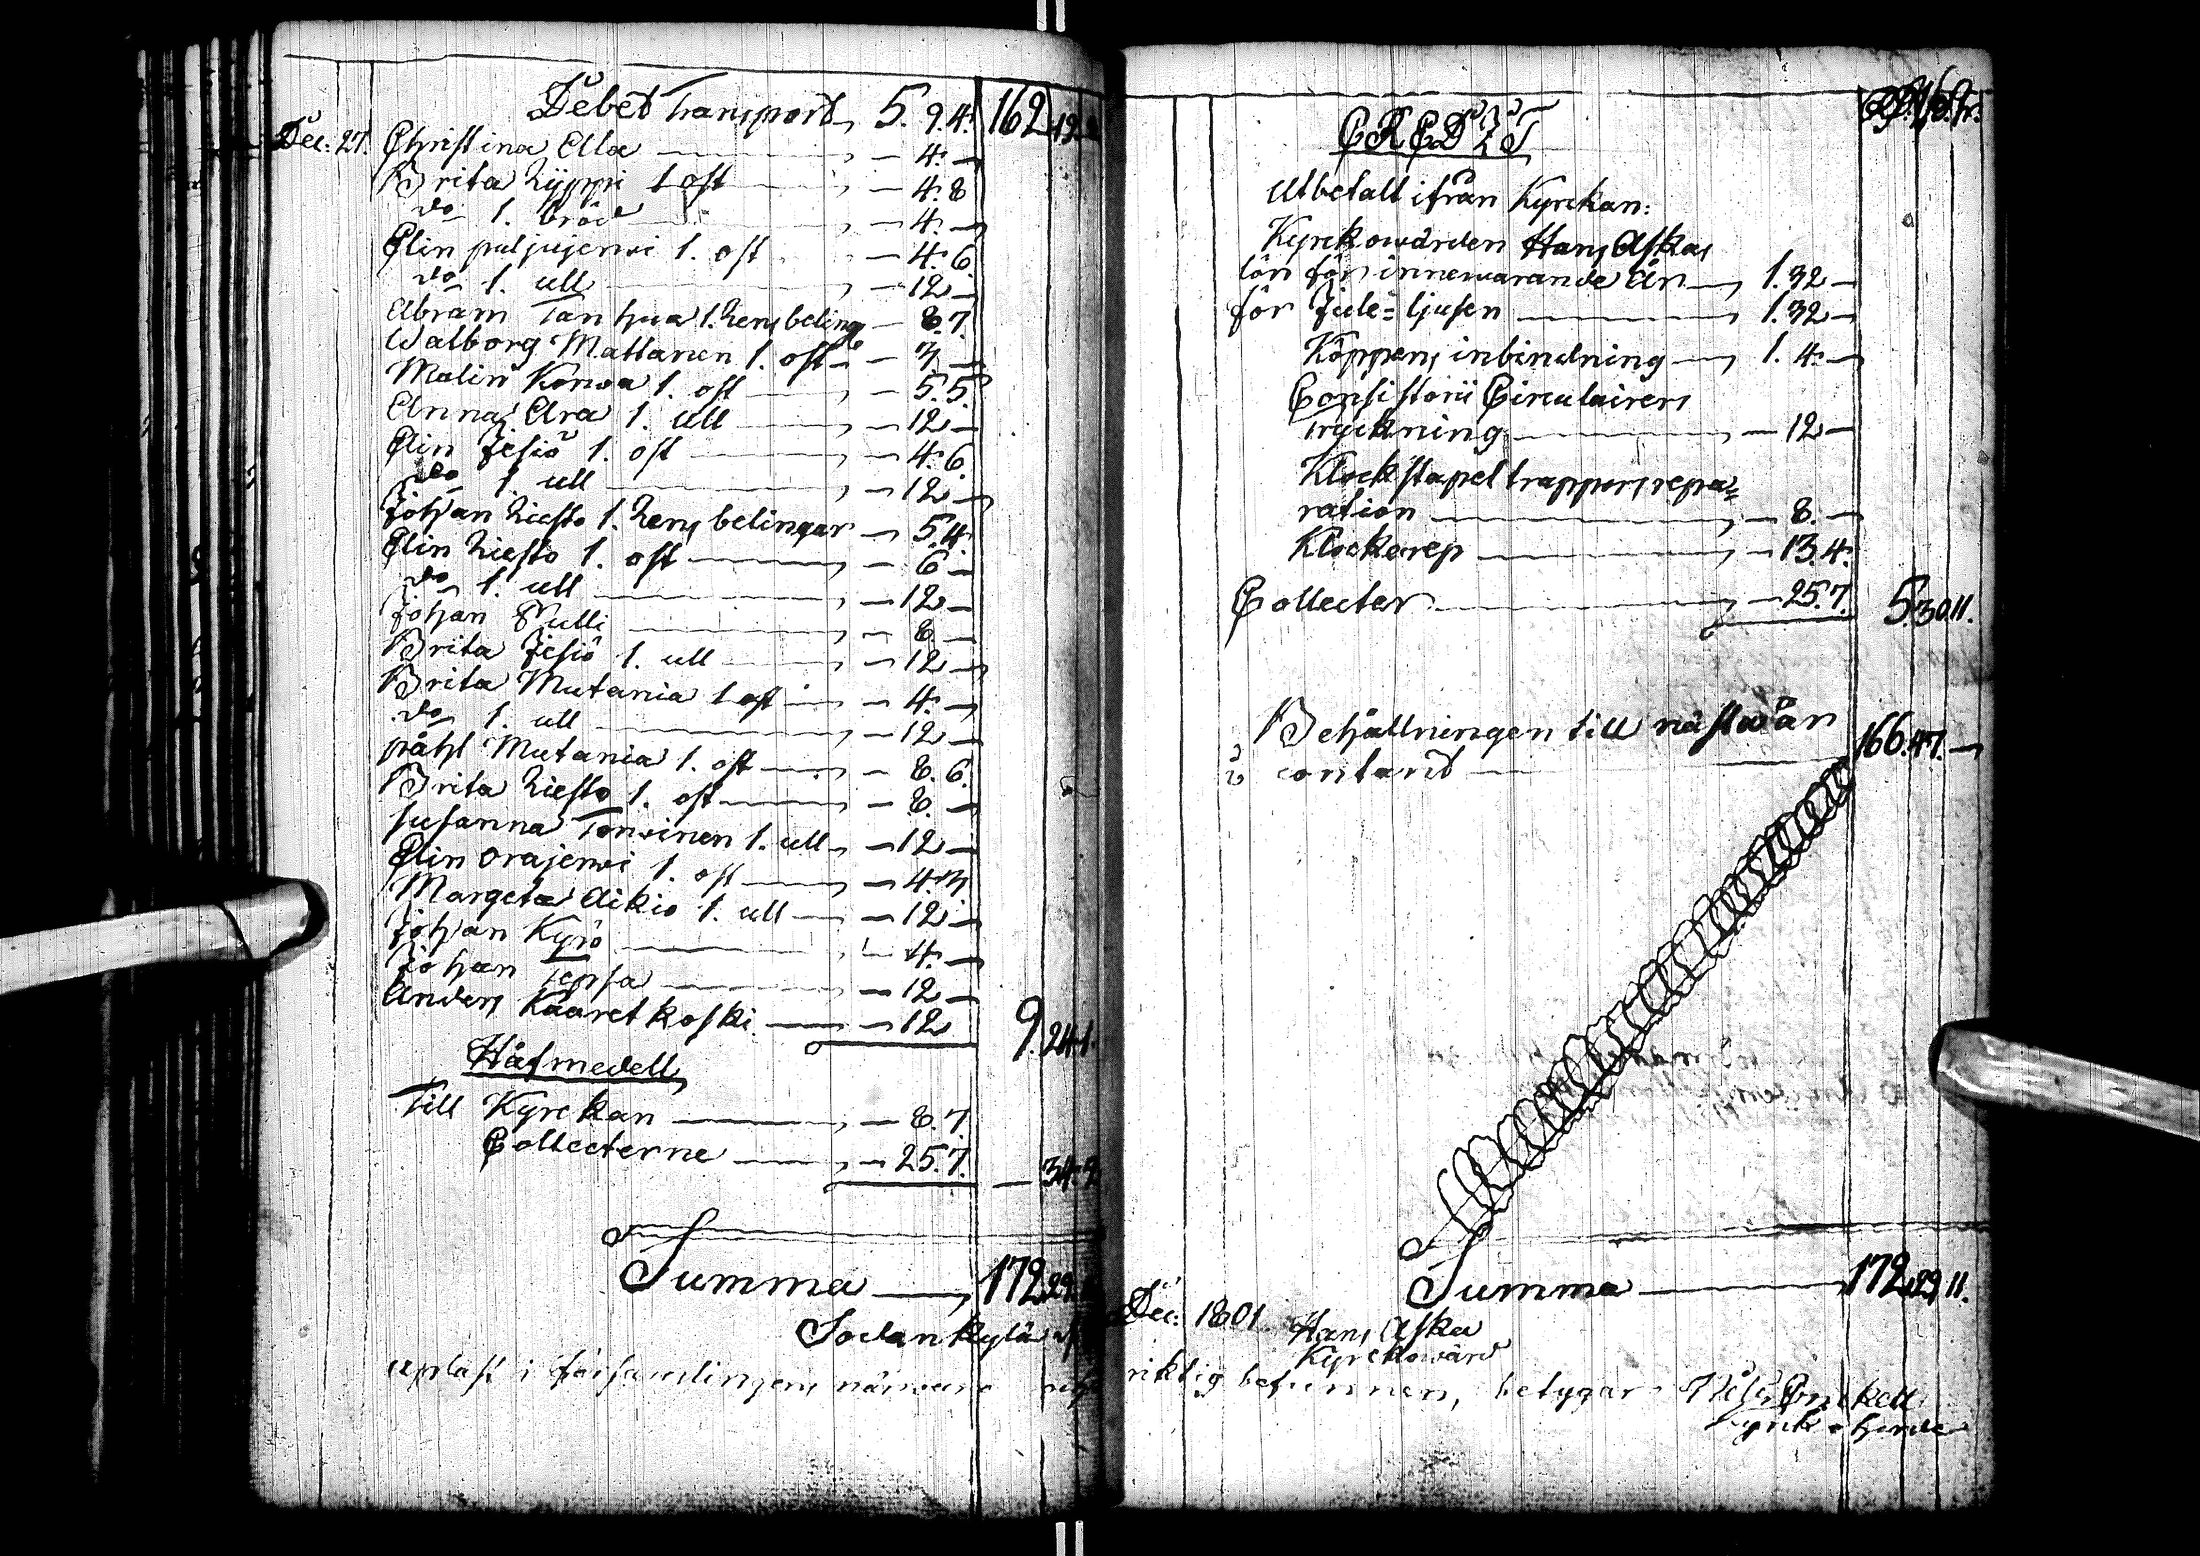 Debet Transport, 5. 9. 4. 162
Dec: 27. Christina Alla — 4. —
Brita Lyppi 1 ost — 4. 8
do 1. bröd — 4. —
Elin puljujerwi 1. ost — 4. 6.
do 1. ull — 12 —
Abram Tanhua 1. Rensbeling — 8. 7.
Walborg Mattanen 1. ost — 3 —
Malin Korwa 1. ost — 5. 5.
Anna Ara 1. ull — 12 —
Elin Jesiö 1. ost — 4. 6.
do 1. ull — 12 —
Johan Liesto 1. Rens belingar — 5. 4.
Elin Liesto 1. ost — 6 —
do 1. ull — 12 —
Johan Pulli — 8 —
Brita Jesiö 1. ull — 12 —
Brita Mutania 1 ost — 4. —
do 1. ull — 12 —
påhl Mutania 1. ost — 8. 6.
Brita Liesto 1. ost — 8. —
Susanna Torwinen 1. ull — 12 —
Elin Orajerwi 1. ost — 4. 3
Margeta Aikio 1. ull — 12 —
Johan Kyrö — 4. —
Johan Tepsa — 12 —
Anders Kaaretkoski — 12 9. 24. 1.
Håfmedell
Till Kyrckan — 8. 7.
Collecterne — 25. 7. — 34. 2
Summa — 172. 29.
Sodankylä
uplast i församlingens närvaro
CREDIT
Utbetalt ifrån Kyrckan:
Kyrckowärden Hans Askas
lön för innewarande År — 1. 32 —
för Jule=ljusen — 1. 32 —
Köppens inbindning — 1. 4. —
Consistorii Circulairers
Tryckning — 12 —
Klockstapel trappors repa=
ration — 8. —
Klockorep — 13. 4.
Collecter — 25. 7. 5. 30. 11.
Behållningen till nästa år
contant — 166. 47. —
Summa — 172. 29. 11.
Dec: 1801. Hans Aska
Kyrckowärd
riktig befunnen, betygar